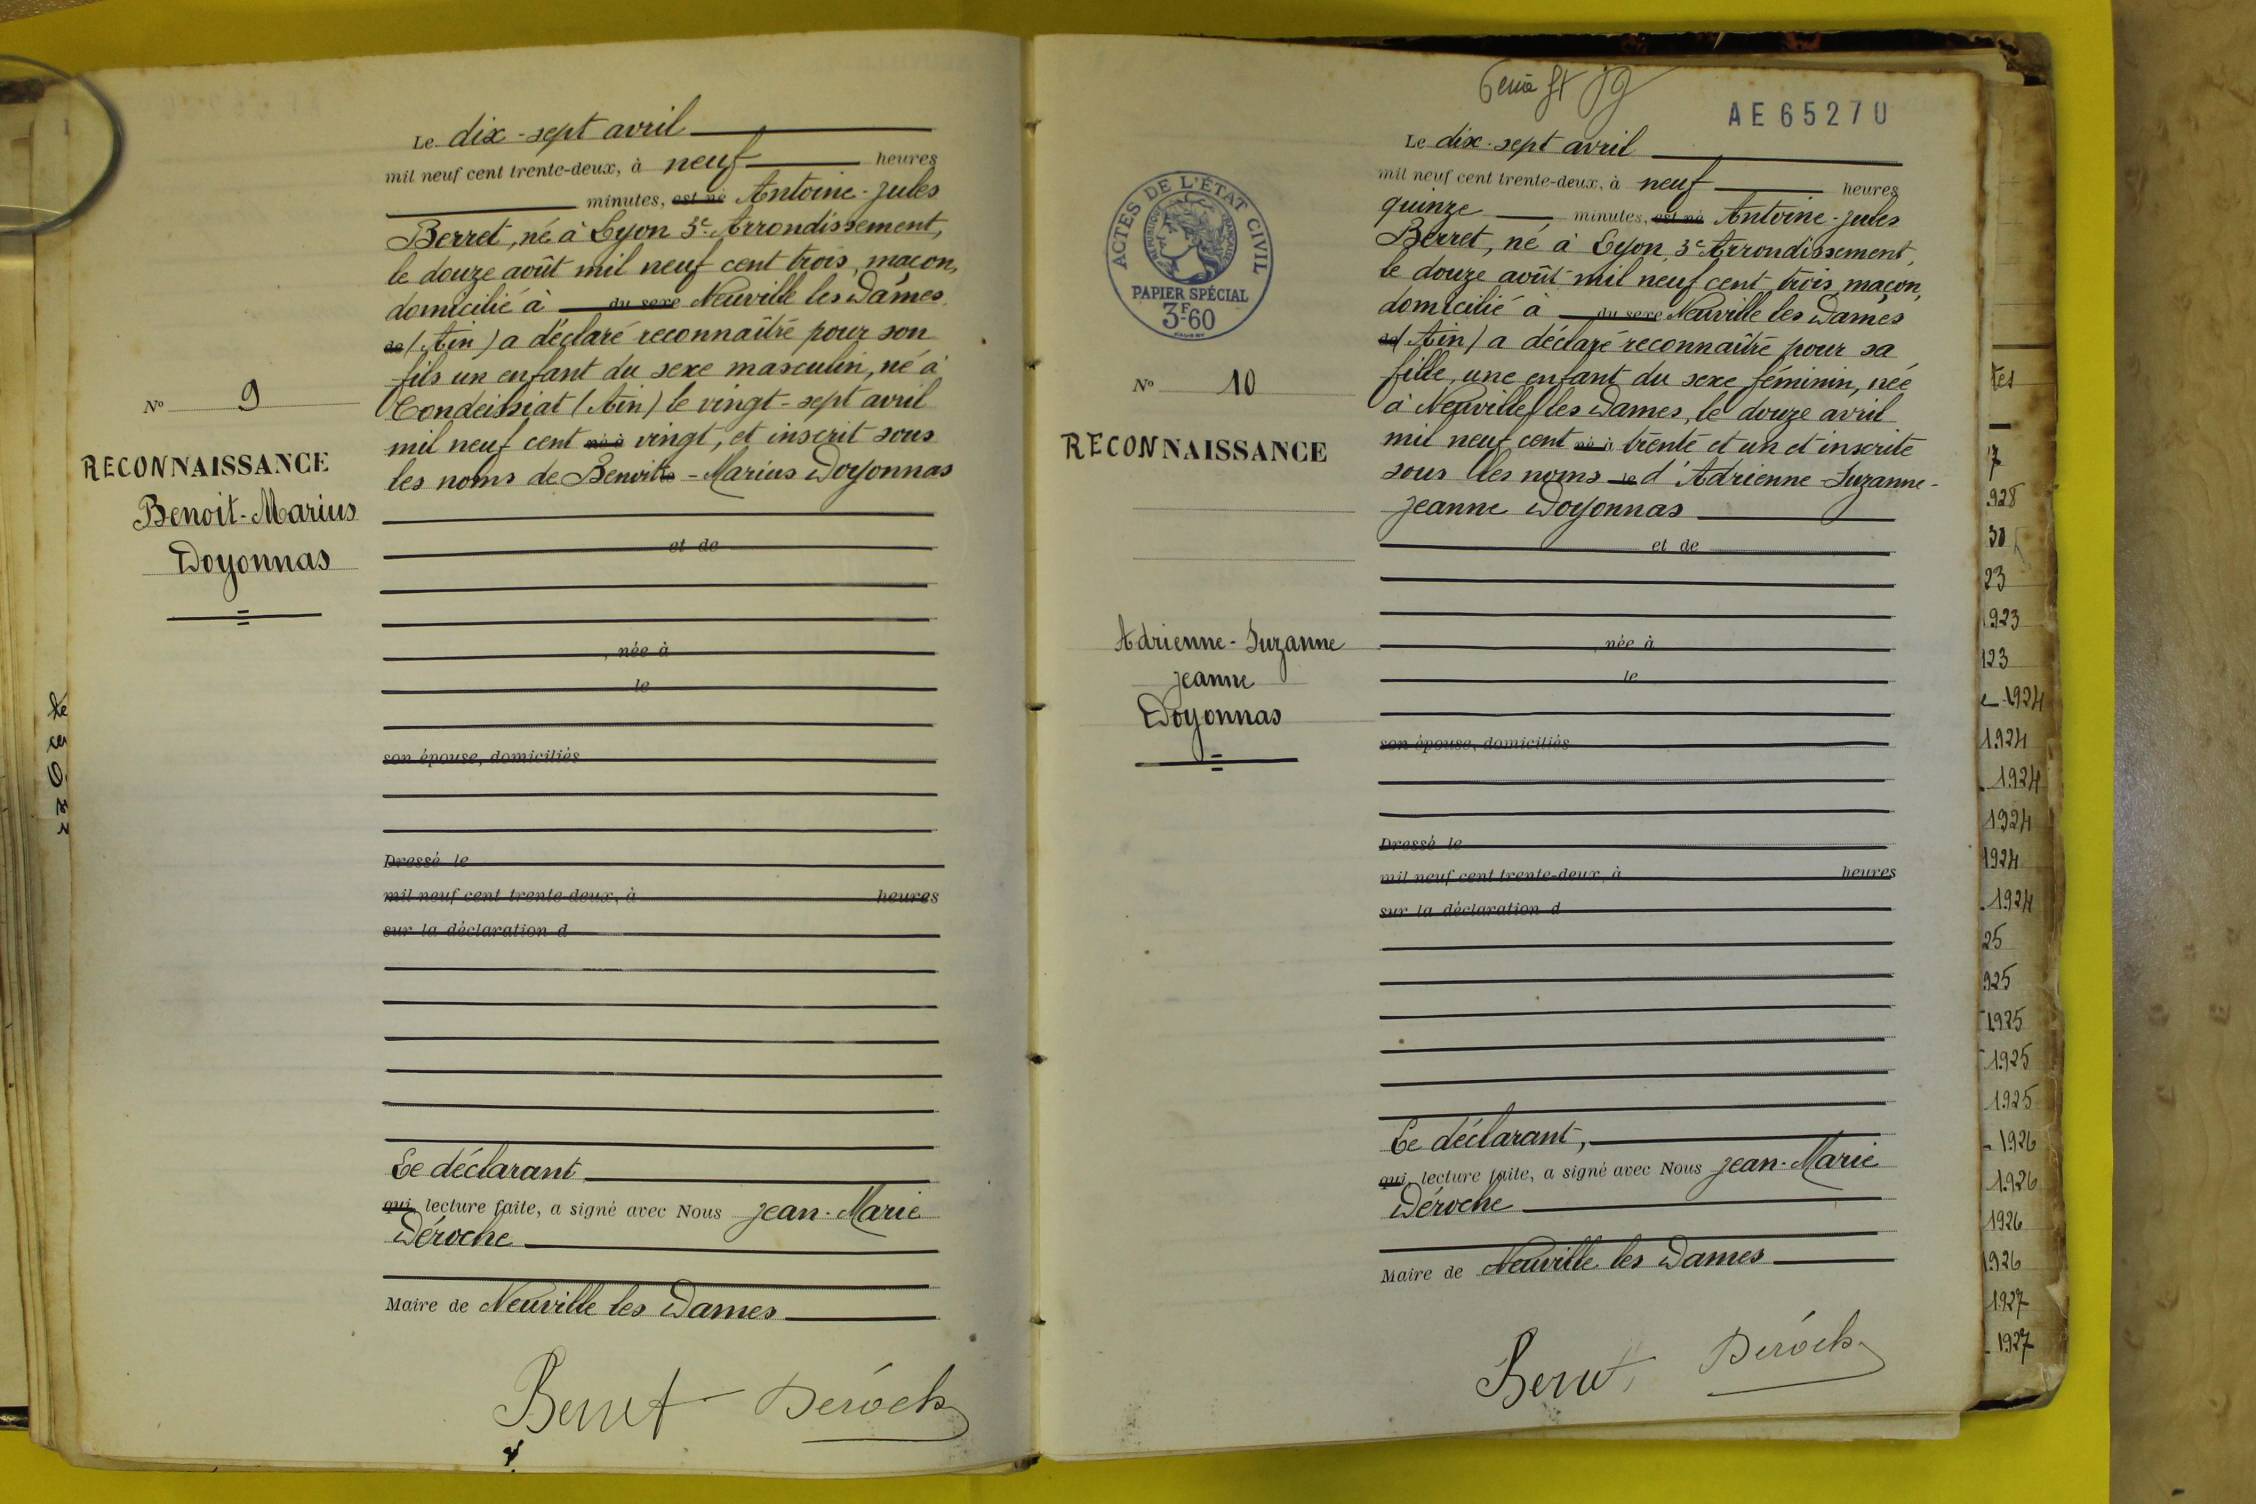 Le dix-sept avril
mil neuf cent trente-deux, à neuf heures
minutes, est né Antoine-Jules
Berret, né à Lyon 3e Arrondissement,
le douze août mil neuf cent trois, maçon,
domicilié à du sexe Neuville les Dames
de (Ain) a déclaré reconnaître pour son
fils un enfant du sexe masculin, né à
Condeissiat (Ain) le vingt-sept avril
mil neuf cent né à vingt, et inscrit sous
les noms de Benoit le - Marius Doyonnas
No 9
RECONNAISSANCE
Benoit-Marius
Doyonnas
et de
, née à
le
son épouse, domiciliés
Dressé le
mil neuf cent trente-deux, à heures
sur la déclaration d
Le déclarant
qui, lecture faite, a signé avec Nous Jean-Marie
Déroche
Maire de Neuville les Dames
Berret Déroche
6eme ft
AE65270
Le dix-sept avril
mil neuf cent trente-deux, à neuf heures
quinze minutes, est né Antoine-Jules
Berret, né à Lyon, 3e Arrondissement,
le douze août mil neuf cent trois, maçon,
domicilié à du sexe Neuville les Dames
de (Ain) a déclaré reconnaître pour sa
fille, une enfant du sexe féminin, née
à Neuville les Dames, le douze avril
mil neuf cent né à trente et un et inscrite
sous les noms le d'Adrienne-Suzanne-
Jeanne Doyonnas
ACTES DE L'ÉTAT CIVIL
RÉPUBLIQUE FRANÇAISE
PAPIER SPÉCIAL
3F60
No 10
RECONNAISSANCE
Adrienne-Suzanne
Jeanne
Doyonnas
et de
née à
le
son épouse, domiciliés
Dressé le
mil neuf cent trente-deux, à heures
sur la déclaration d
Le déclarant,
qui, lecture faite, a signé avec Nous Jean-Marie
Déroche
Maire de Neuville les Dames
Berret Déroche
tes
7
928
30
23
1923
123
1924
1924
1924
1924
1924
1924
25
925
1925
1925
1925
1926
1926
1926
1926
1927
1927